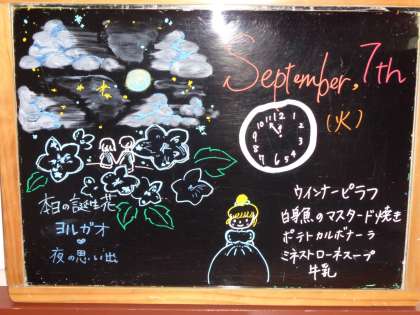 September, 7th
(火)
12
1
2
3
4
5
6
7
8
9
10
11
本日の誕生花
ヨルガオ
夜の思い出
ウインナーピラフ
白身魚のマスタード焼き
ポテトカルボナーラ
ミネストローネスープ
牛乳